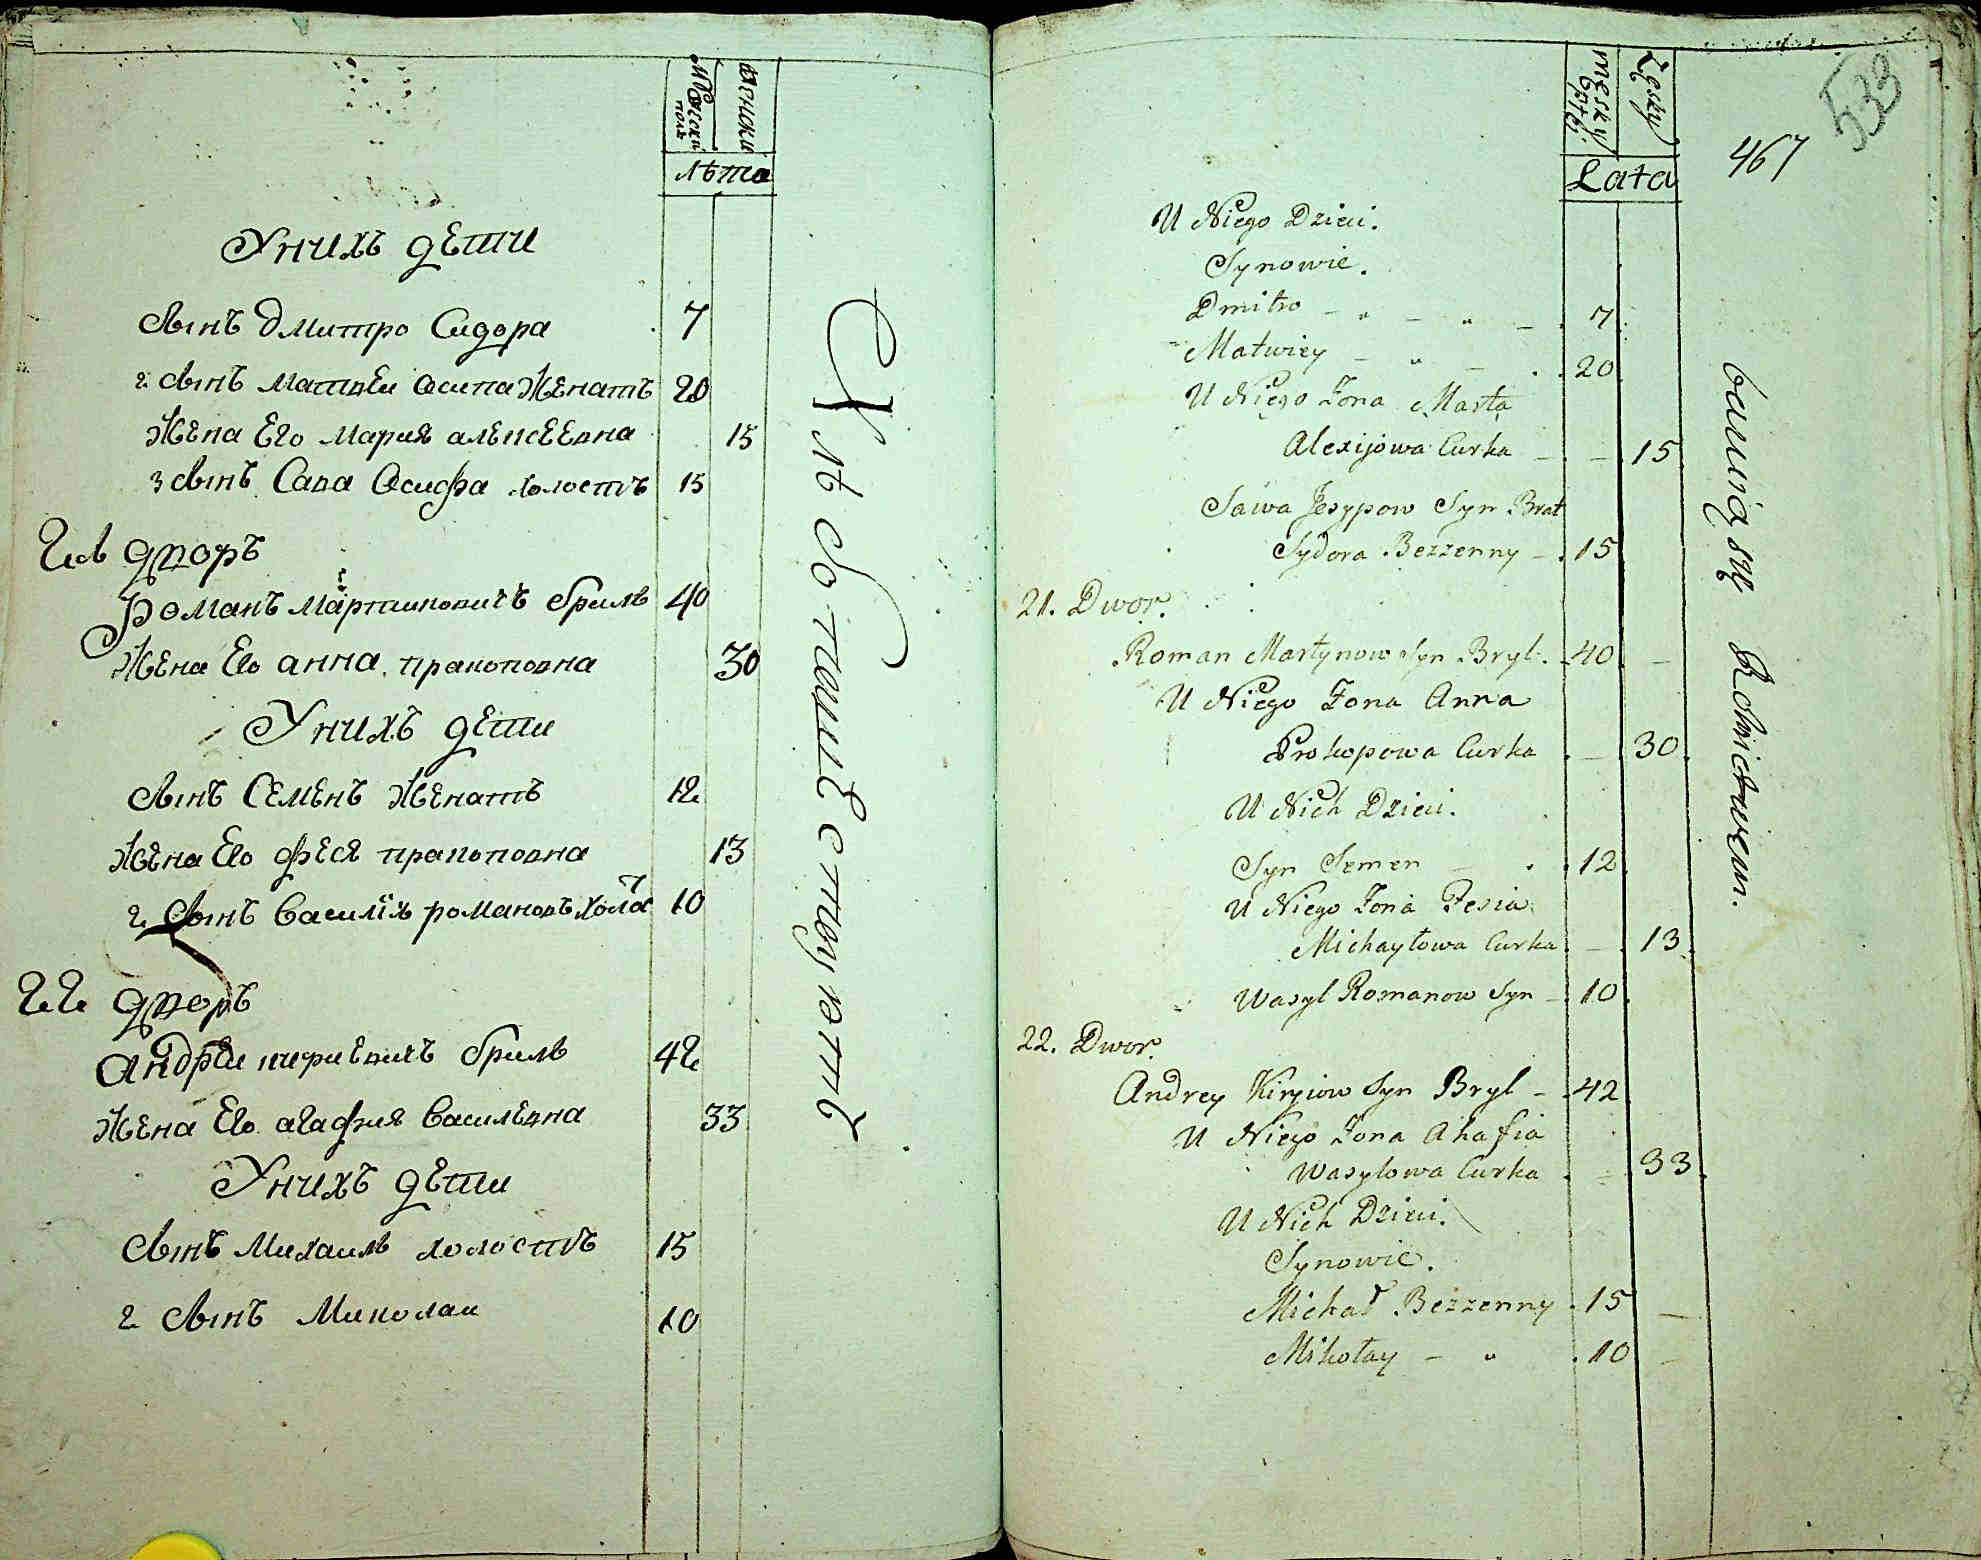 Мужски полъ
Женски
лѣта
У нихъ дети
Сынъ дмитро Сидора 7
2 сынъ матвеи осипа женатъ 20
жена Его Мария алексеевна 15
3 сынъ Сава Осифа холостъ 15
21 дворъ
Романъ Мартиновичъ бриль 40
жена Его анна пракоповна 30
У нихъ дети
Сынъ Семенъ женатъ 12
жена Его феся пракоповна 13
2 Сынъ василiй романовъ холос 10
22 дворъ
андрей киривичъ бриль 42
жена Его агафия василевна 33
У нихъ дети
Сынъ Михаилъ холостъ 15
2 Сынъ Миколаи 10
Męsky
Żęsky
Lata
467
533
U Niego Dzieci.
Synowie.
Dmitro - „ - „ - 7
Matwiey - „ - . 20
U Niego Żona Marta
Alexijowa Curka - - 15
Sawa Jesypow Syn Brat
Sydora Bezzenny - 15
21. Dwor.
Roman Martynow Syn Bryl. 40 -
U Niego Żona Anna
Prokopowa Curka - 30
U Nich Dzieci.
Syn Semen - . 12
U Niego Żona Fesia
Michayłowa Curka - 13
Wasyl Romanow Syn - 10
22. Dwor.
Andrey Kiryiow Syn Bryl - 42
U Niego Żona Ahafia
Wasylowa Curka - 33
U Nich Dzieci.
Synowie.
Michał Bezzenny . 15 -
Mikołay - „ . 10 -
bawią się Rolnictwem.